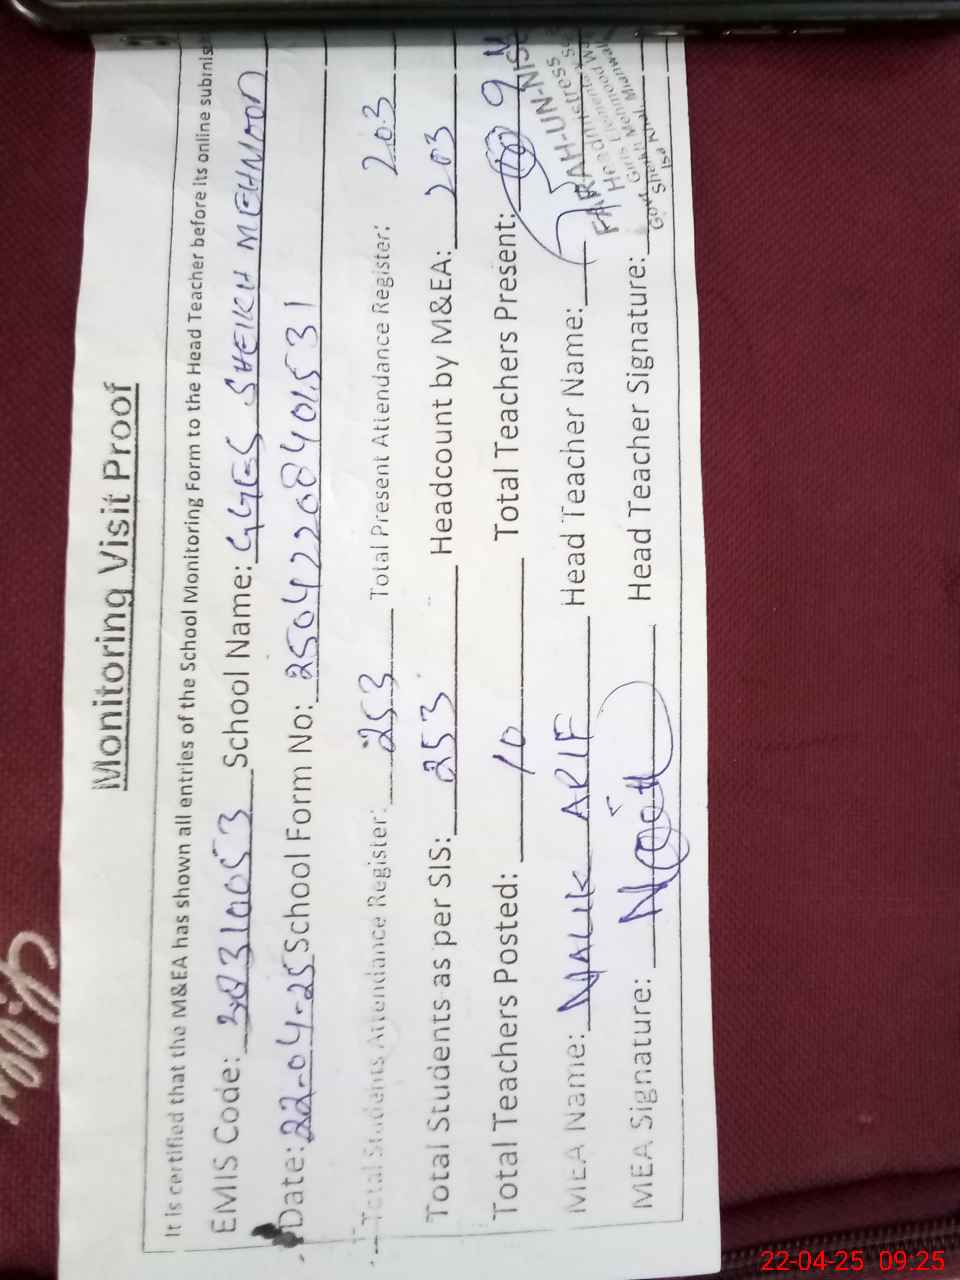 Monitoring Visit Proof
It is certified that the M&EA has shown all entries of the School Monitoring Form to the Head Teacher before its online submis
EMIS Code: 38310053 School Name: GGES SHEIKH MEHMOOD
Date: 22-04-25 School Form No: 25042208401531
Total Students Attendance Register: 253 Total Present Attendance Register: 203
Total Students as per SIS: 253 Headcount by M&EA: 203
Total Teachers Posted: 10 Total Teachers Present: 9
MEA Name: MALIK ARIF Head Teacher Name:
MEA Signature: Head Teacher Signature:
FARAH-UN-NIS
Headmistress
Govt Girls Elementary
Sheikh Mahmood
Isa Khel, Mianwali
22-04-25 09:25